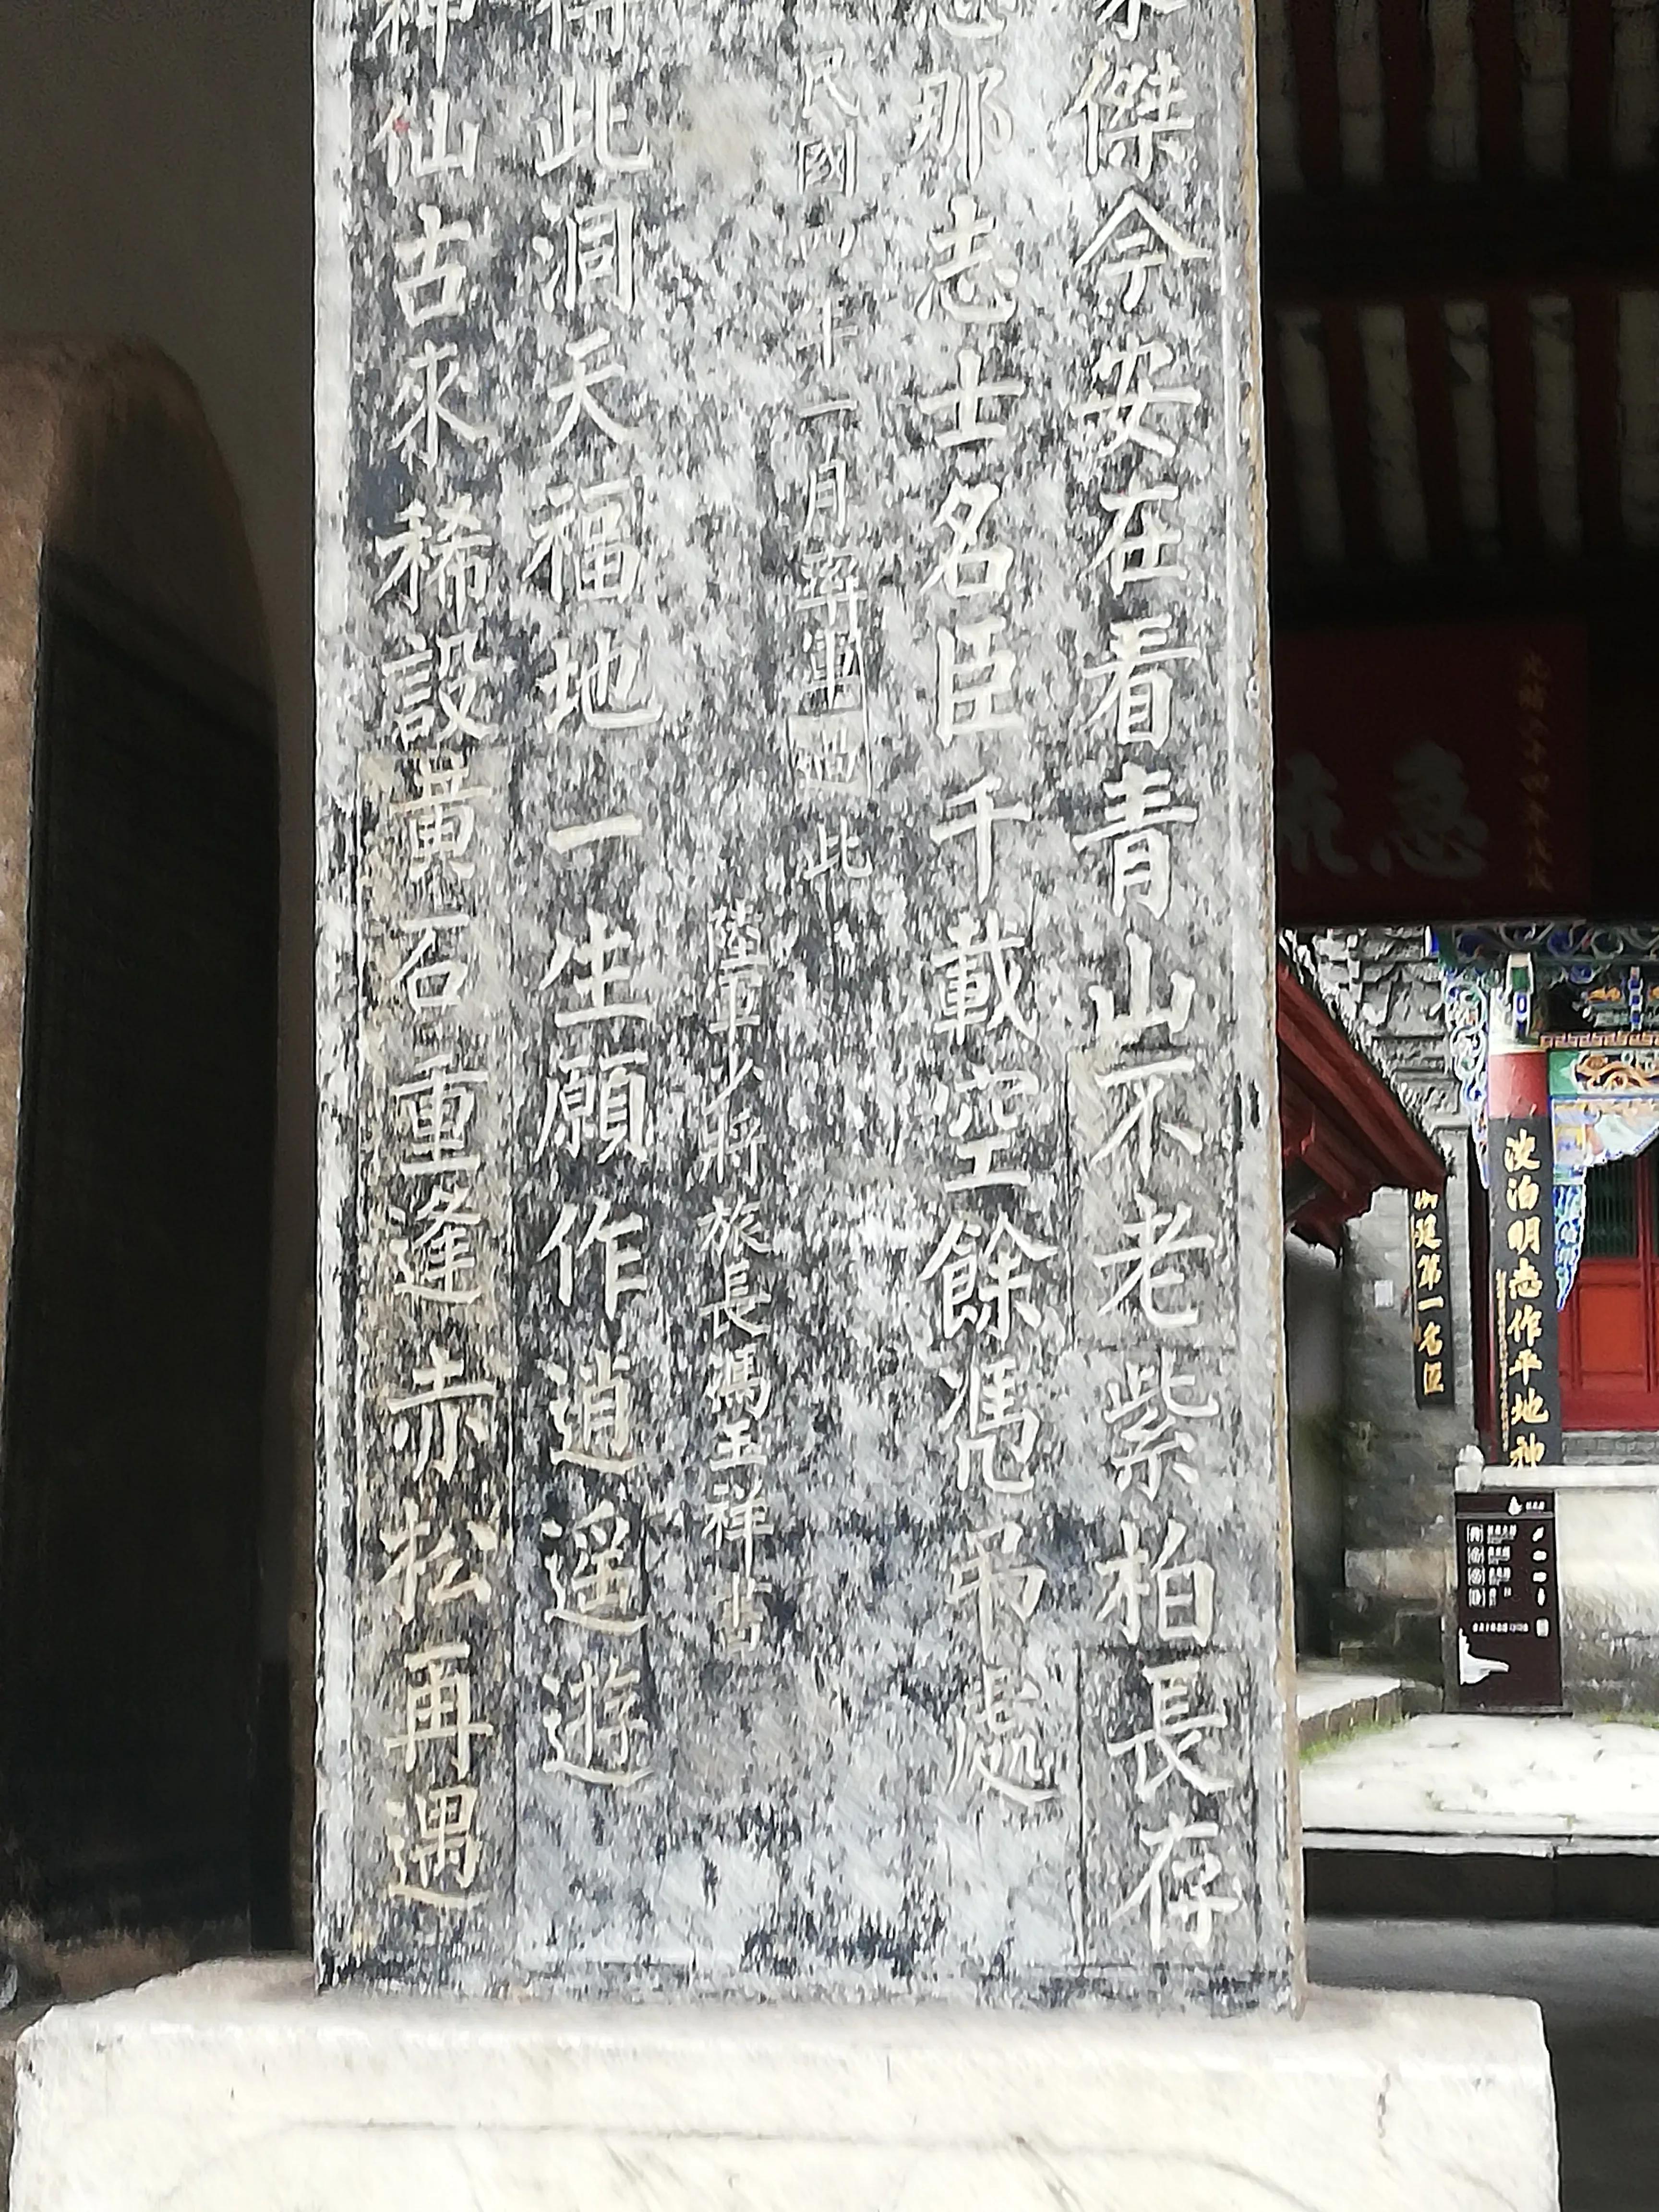 傑今安在看青山不老紫柏長存
那志士名臣千載空餘馮弔處
民國四年十一月率軍過此
陸軍少將旅長馮玉祥書
此洞天福地一生願作逍遥遊
神仙古來稀設黃石重逢赤松再遇
第一名臣
淡泊明志作平地神